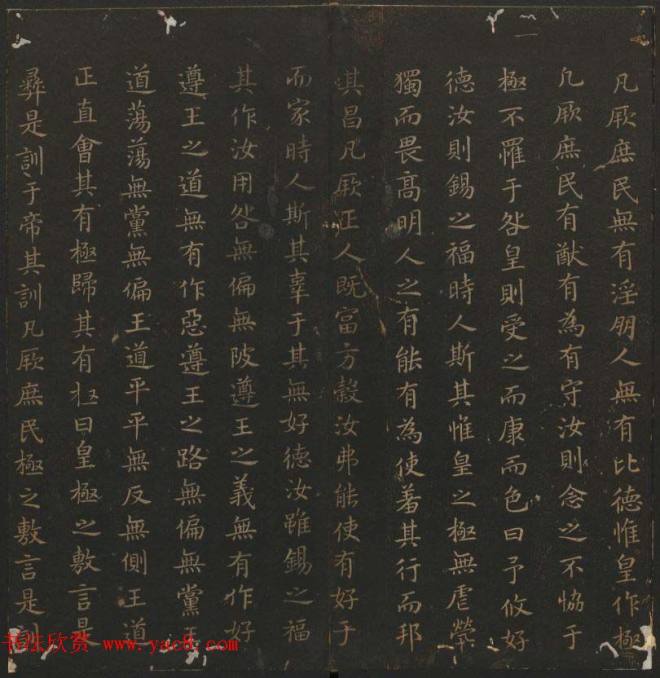 凡厥庶民無有淫朋人無有比德惟皇作極
凡厥庶民有猷有為有守汝則念之不恊于
極不罹于咎皇則受之而康而色曰予攸好
德汝則錫之福時人斯其惟皇之極無虐煢
獨而畏髙明人之有能有為使羞其行而邦
其昌凡厥正人既富方榖汝弗能使有好于
而家時人斯其辜于其無好德汝雖錫之福
其作汝用咎無偏無陂遵王之義無有作好
遵王之道無有作惡遵王之路無偏無黨王
道蕩蕩無黨無偏王道平平無反無側王道
正直會其有極歸其有極曰皇極之敷言是
彝是訓于帝其訓凡厥庶民極之敷言是訓
书法欣赏 www.yac8.com